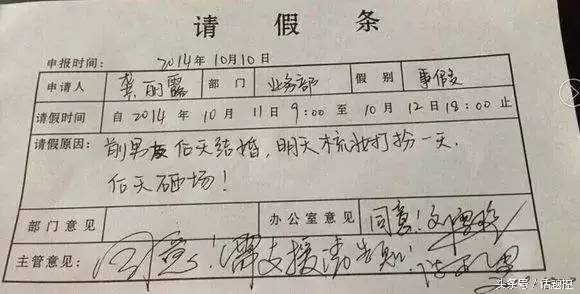 请假条
申报时间： 2014年10月10日
申请人 龚丽露 部门 业务部 假别 事假
请假时间 自2014年10月11日9:00至10月12日18:00止
请假原因： 前男友后天结婚,明天梳妆打扮一天.
后天砸场!
部门意见 办公室意见 同意!
主管意见： 同意!需支援请告知!
头条号／话题控